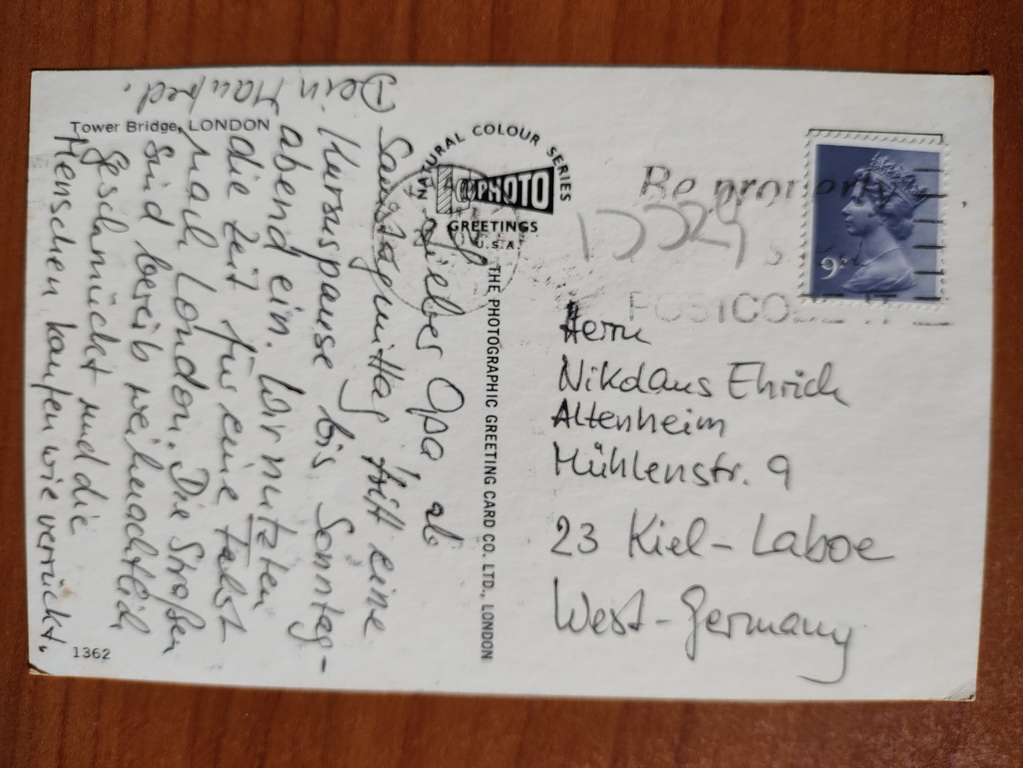 Tower Bridge, LONDON
Lieber Opa, ab
Samstagmittag tritt eine
Kursuspause bis Sonntag-
abend ein. Wir nutzten
die Zeit für eine Fahrt
nach London. Die Straßen
sind bereits weihnachtlich
geschmückt und die
Menschen kaufen wie verrückt.
Dein Manfred.
1362
NATURAL COLOUR SERIES
PHOTO
GREETINGS
U.S.A.
THE PHOTOGRAPHIC GREETING CARD CO. LTD., LONDON
Be properly
POSTCODE IT
9
Herrn
Nikolaus Ehrich
Altenheim
Mühlenstr. 9
23 Kiel-Laboe
West-Germany